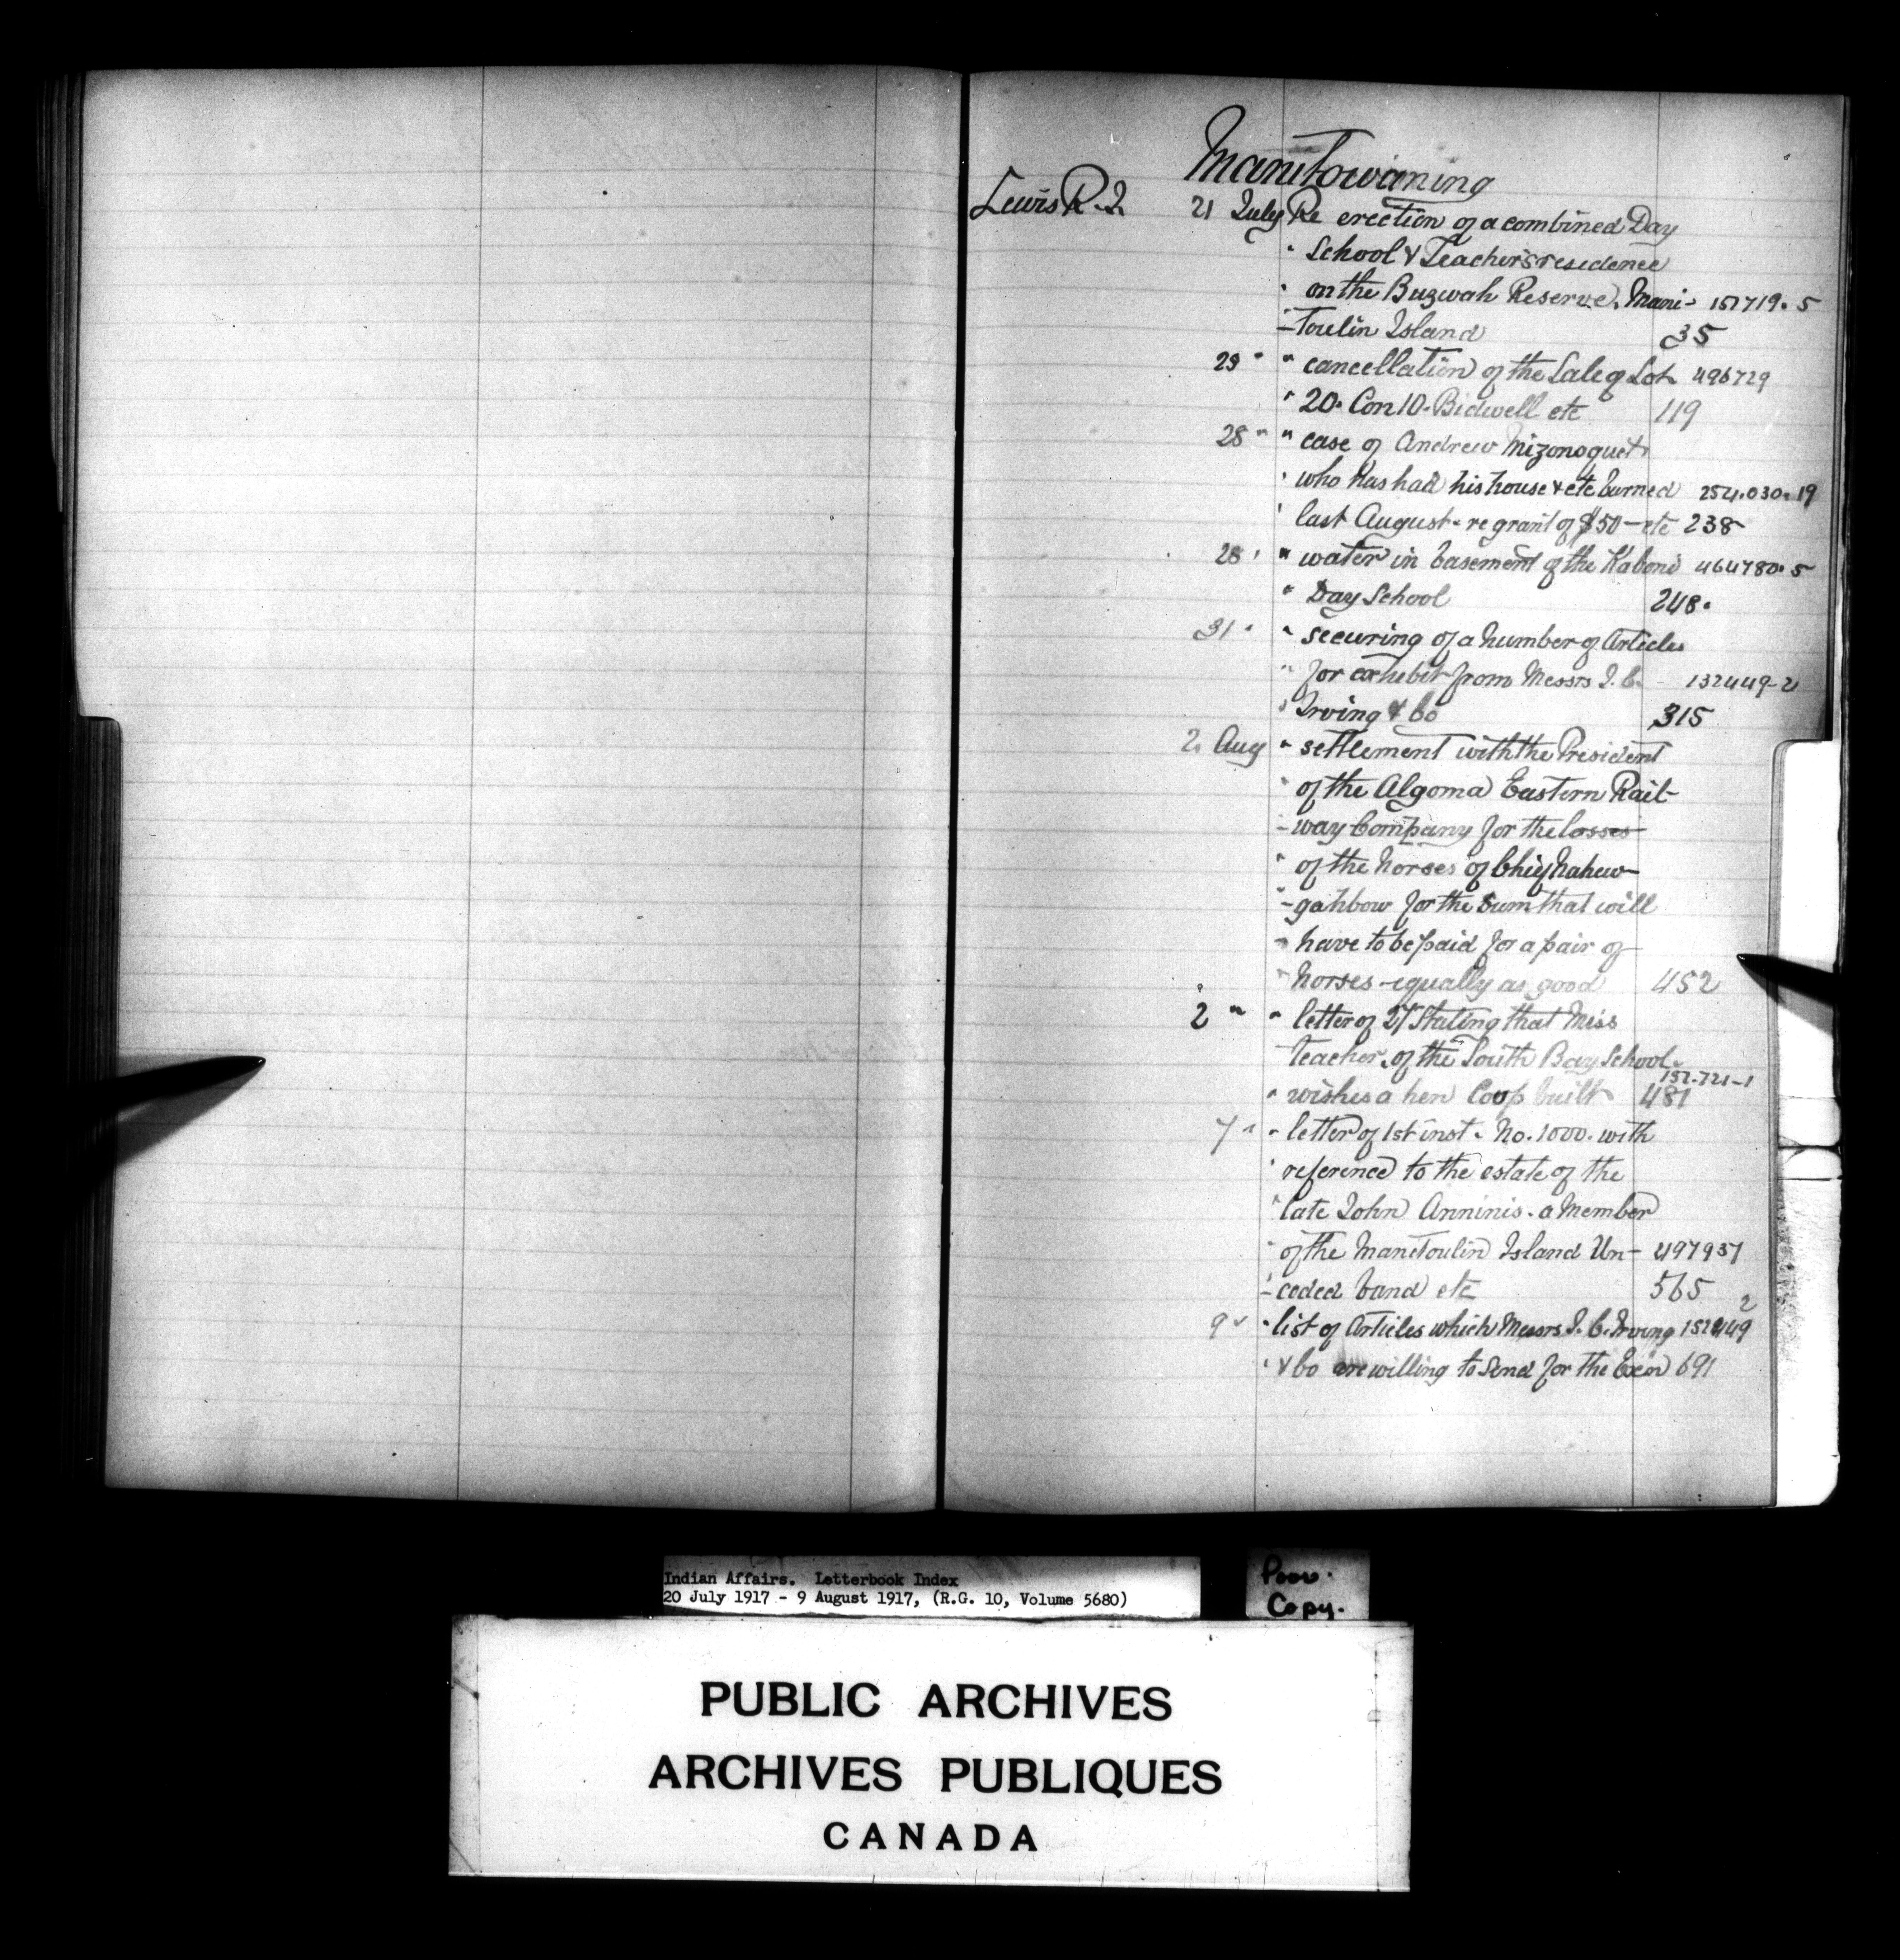 Manitowaning
Lewis R. J. 21 July Re erection of a combined Day
" School & Teacher's residence
" on the Buzwah Reserve, Mani- 151719.5
-toulin Island 35
" " cancellation of the Sale of Lot 496729
" 20. Con 10. Bidwell etc 119
28 " " case of Andrew Mizonoquet
" who has had his house & etc burned 254.030.19
" last August - re grant of $50 - etc 238
28 " " water in basement of the Kaboni 464780.5
" Day School 248.
31 " " securing of a number of Articles
" for exhibit from Messrs J. C. 132449-2
" Irving & Co 315
2 Aug " settlement with the President
" of the Algoma Eastern Rail-
- way Company for the losses
" of the horses of Chief Nahew-
- gahbow for the sum that will
" have to be paid for a pair of
" horses - equally as good 452
2 " " letter of 27 Stating that Miss
teacher. of the South Bay School
151-721-1
" wishes a hen Coop built 481
7 " " letter of 1st inst. No. 1000. with
" reference to the estate of the
" late John Anninis. a Member
" of the Manitoulin Island Un- 497937
- ceded band etc 565
2
9 " " list of Articles which Messrs J. C. Irving
" & Co are willing to send for the 691
Indian Affairs. Letterbook Index
20 July 1917 - 9 August 1917, (R.G. 10, Volume 5680)
Poor.
Copy.
PUBLIC ARCHIVES
ARCHIVES PUBLIQUES
CANADA